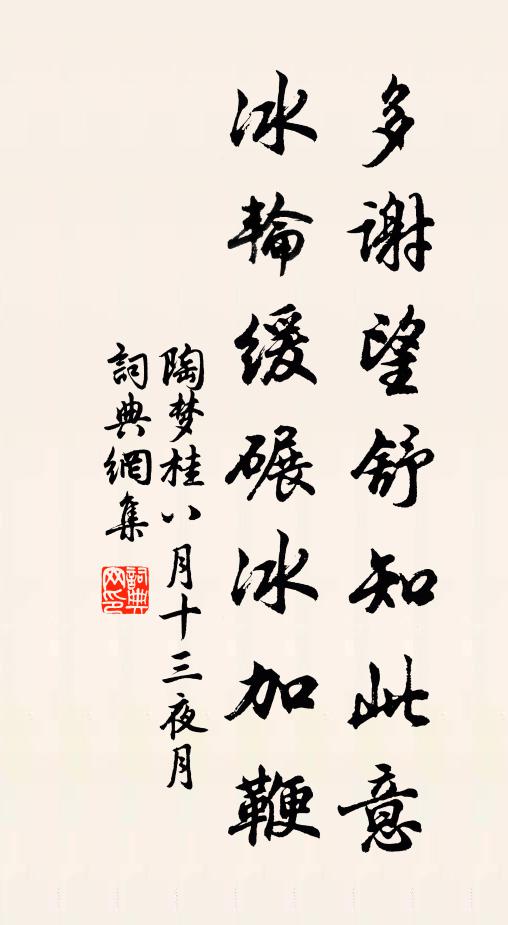 多謝望舒知此意
冰輪緩碾冰加鞭
陶梦桂八月十三夜月
詞典網集
詞典网印